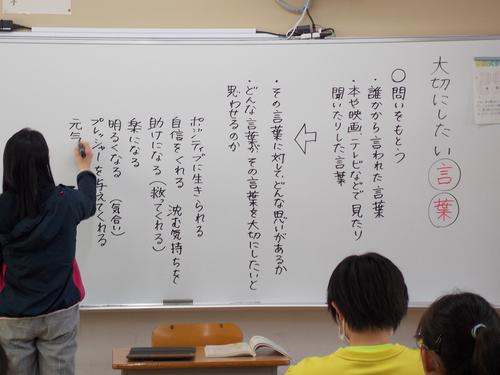 大切にしたい言葉
○問いをもとう
・誰かから言われた言葉
・本や映画、テレビなどで見たり
聞いたりした言葉
・その言葉に対して、どんな思いがあるか
・どんな言葉が、その言葉を大切にしたいと
思わせるのか
ポジティブに生きられる
自信をくれる　沈む気持ちを
助けになる（救ってくれる）
楽になる
明るくなる（気合い）
プレッシャーを与えてくれる
元気